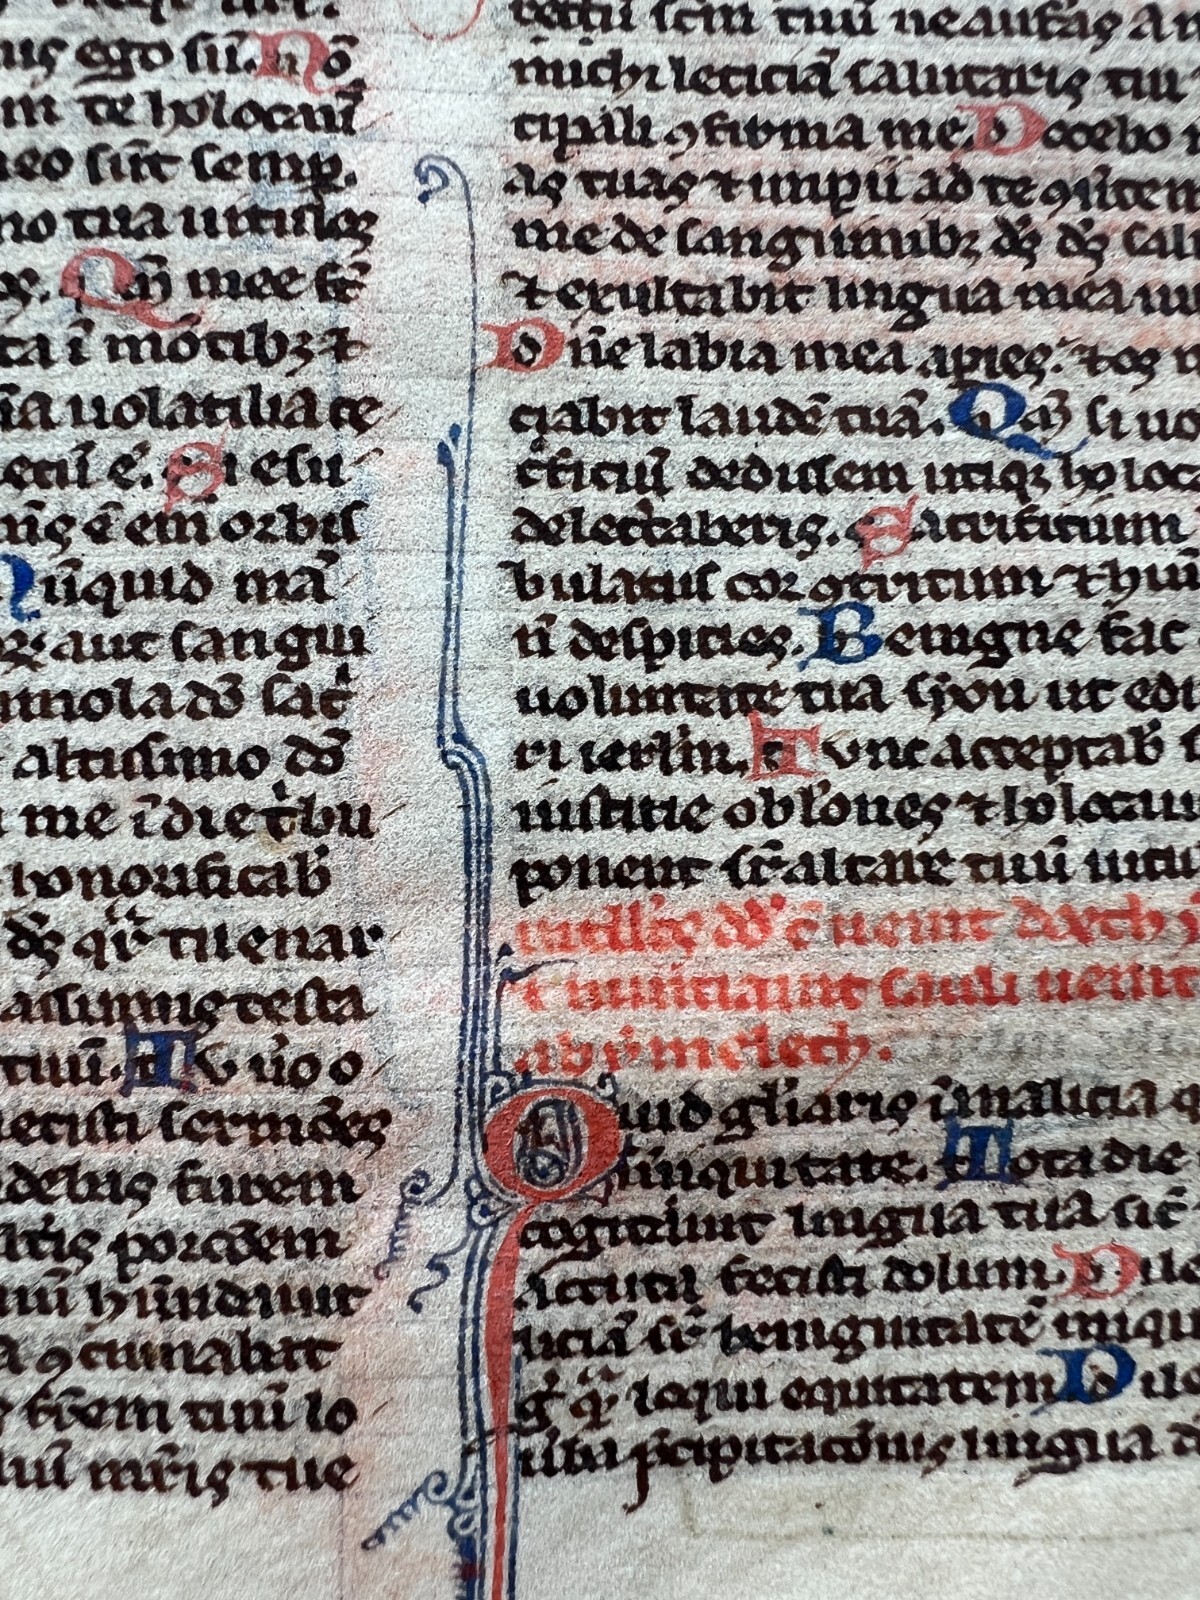 us ego sū. Nō
m te holocau̅
eo sūt semp.
mo tua uitulos
Qm̄ mee st̄
ta ī mōtibꝫ ⁊
ia uolatilia ce
ecū ē. Si esu
ē em̄ orbis
Nūquid mā
aut sangui
mmola dō sac̄
altissimo dō
me ī die t̄bu
honorificab̄
dꝰ qr̄ tu enar
assumis testa
tuū. Tu uō o
ecisti sermōes
debas furem
ltīs porcōem
uū hūndauit
ꝯcinnabat
fr̄em tuū lo
liū mr̄is tue
sc̄m tuū ne auferas a
michi leticiā salutaris tui
cipali ꝯfirma me. Docebo
as tuas ⁊ impii ad te ꝯu̅ten
me de sanguinibꝫ dꝰ dꝰ sal
⁊ exultabit lingua mea iu
Dn̄e labia mea apies. ⁊ os
ciabit laudē tuā. Qm̄ si uo
c̄ficiū dedissem utiqꝫ holoc
delectaberis. Sacrificium
bulatus cor ꝯtritum ⁊ hu
n̄ despicies. Benigne fac
uoluntate tua syon ut edi
ri ierl̄m. Tunc acceptab̄
iusticie obl̄ones ⁊ holocau
ponent sr̄ altare tuū uitu
dd̄ c̄ uenit doech
⁊ nūtiauit sauli uenit
abymelech.
Quid gl̄iaris ī malicia
ī iniquitate. Tota die
cogitauit lingua tua sic̄
acuta fecisti dolum. Dile
liciā sr̄ benignitatē iniqui
loqui equitatem Dile
uerba p̄cipitacōnis lingua d